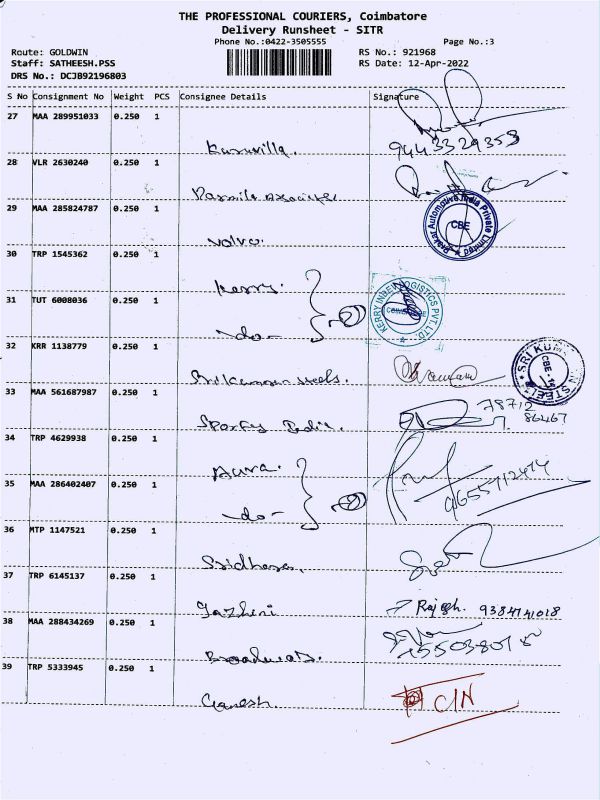 THE PROFESSIONAL COURIERS, Coimbatore
Delivery Runsheet - SITR
Phone No.:0422-3505555
Page No.:3
Route: GOLDWIN
RS No.: 921968
Staff: SATHEESH.PSS
RS Date: 12-Apr-2022
DRS No.: DCJB92196803
S No Consignment No Weight PCS Consignee Details Signature
27 MAA 289951033 0.250 1
Kuruvilla. 9443329353
28 VLR 2630240 0.250 1
29 MAA 285824787 0.250 1
Volvo.
Automotive India Private Limited
CBE
30 TRP 1545362 0.250 1
Kerry.
31 TUT 6008036 0.250 1
-do-
KERRY INDEV LOGISTICS PVT. LTD.
COIMBATORE
32 KRR 1138779 0.250 1
Srikumaran steels.
SRI KUMARAN STEELS
CBE - 14
33 MAA 561687987 0.250 1
78712
86467
34 TRP 4629938 0.250 1
Aura.
35 MAA 286402407 0.250 1
-do-
9655712474
36 MTP 1147521 0.250 1
Sridhara.
37 TRP 6145137 0.250 1
Rajesh. 9384741018
38 MAA 288434269 0.250 1
39 TRP 5333945 0.250 1
Ganesh.